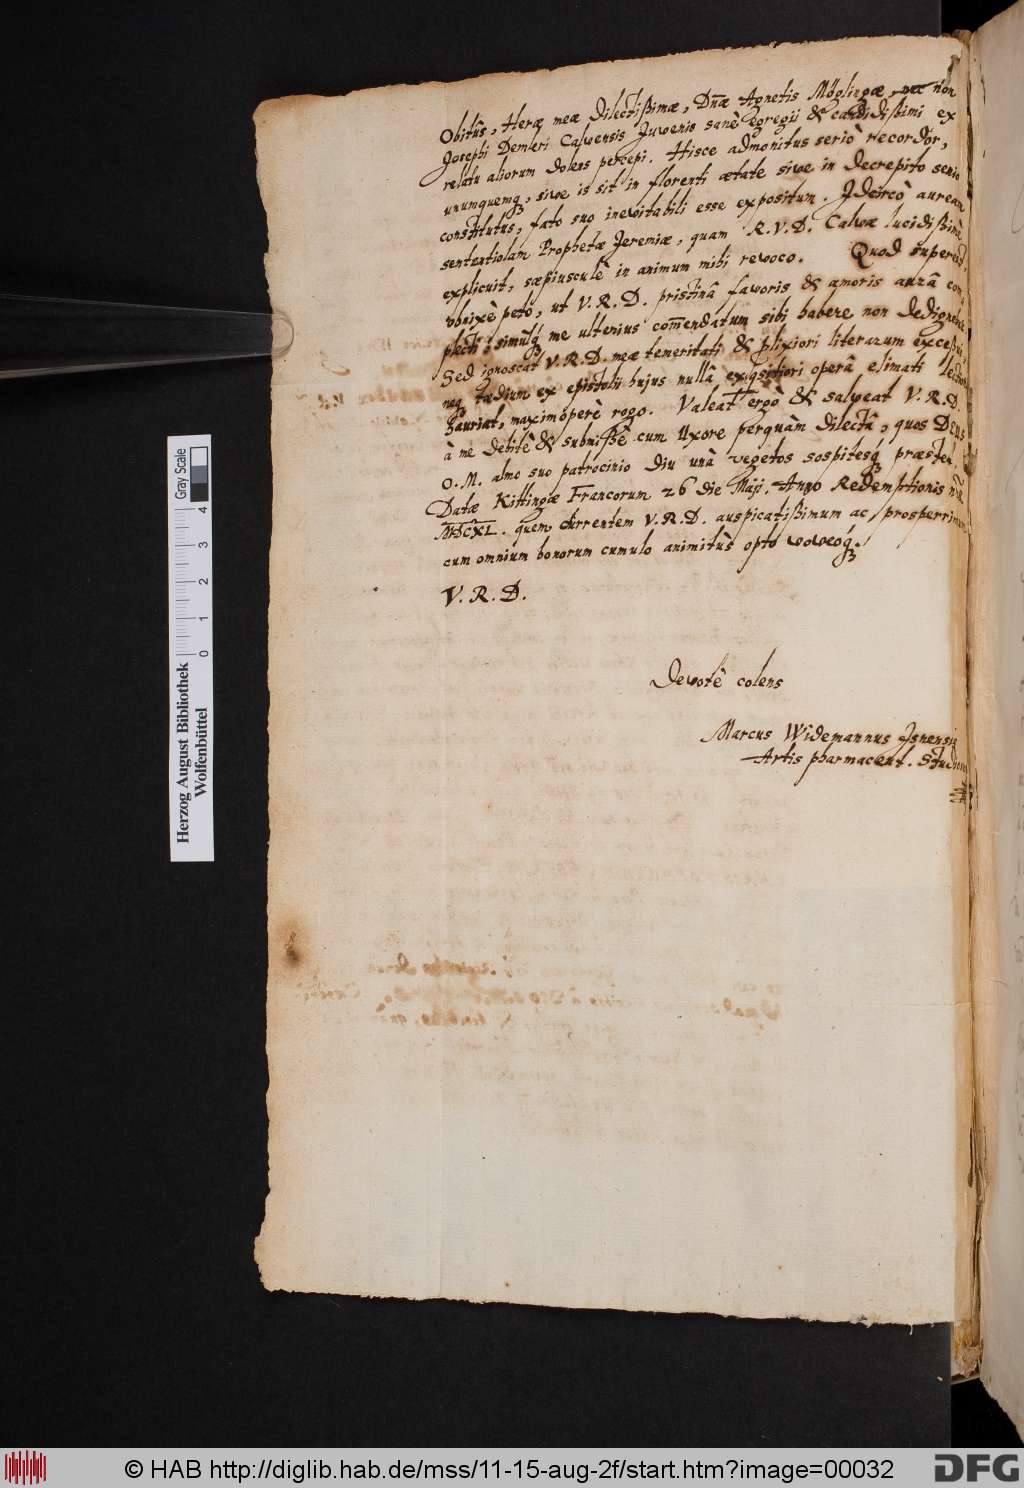 Obitûs, Heræ meæ dilectissimæ, Dn̄æ Agnetis Möglingæ, nec non
Josephi Demleri Calvensis Juvenis sanè egregii & candidissimi ex
relatu aliorum dolens percepi. Hisce admonitus seriò recordor,
unumquemq, sive is sit in florenti ætate sive in decrepito senio
constitutus, fato suo inevitabili esse expositum. Idcircò auream
sententiolam Prophetæ Jeremiæ, quam R.V.D. Calvæ lucidissimè
explicuit, sæpiusculè in animum mihi revoco. Quod superest
obnixè peto, ut V.R.D. pristinâ favoris & amoris aurâ
plecti, simulq me ulterius com̄endatum sibi habere non dedignetur
Sed ignoscat V.R.D. meæ temeritati & plixiori literarum
neq tædium ex epistolii hujus nullâ exqsitiori operâ elimati
hauriat, maximoperè rogo. Valeat ergò & salveat V.R.D.
à me debitè & submissè cum Uxore perquàm dilectâ, quos Deus
O.M. almo suo patrocinio diu unà vegetos sospitesq præstet.
Datæ Kittingæ Francorum 26 die Maji. Anno Redemptionis
MDCXL. quem currentem V.R.D. auspicatissimum ac prosperrimum
cum omnium bonorum cumulo animitùs opto voveoq.
V.R.D.
Devotè colens
Marcus Widemannus Isnensis
Artis pharmaceut. Studiosus
Herzog August Bibliothek
Wolfenbüttel
Gray Scale
0 1 2 3 4
© HAB http://diglib.hab.de/mss/11-15-aug-2f/start.htm?image=00032
DFG